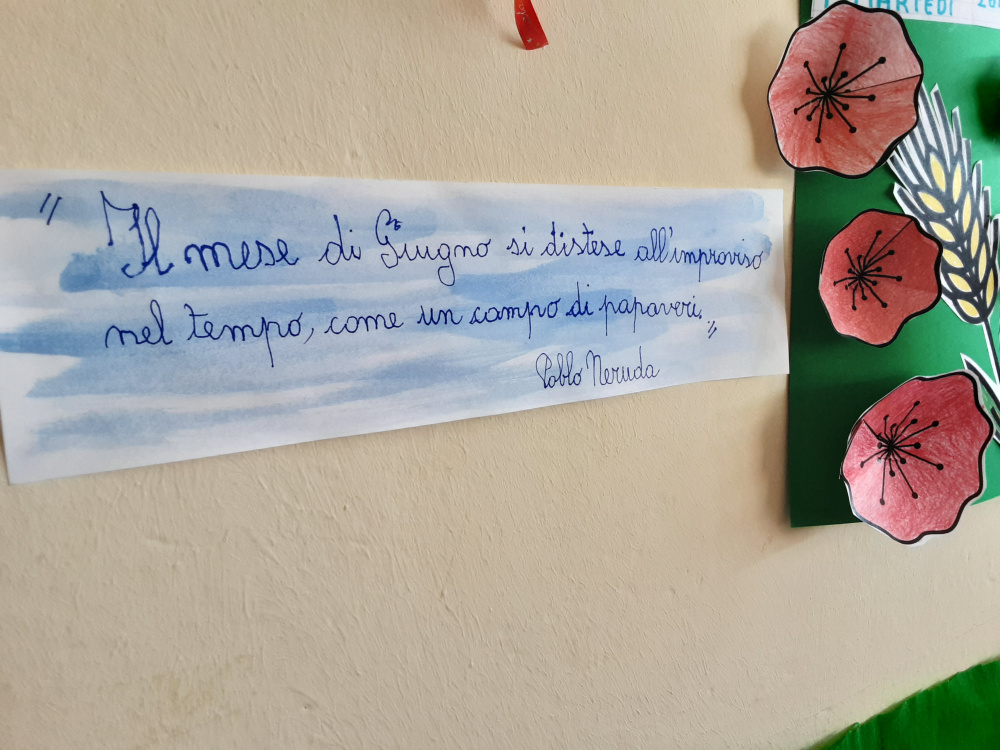 MARTEDÌ
" Il mese di Giugno si distese all'improviso
nel tempo, come un campo di papaveri. "
Pablo Neruda